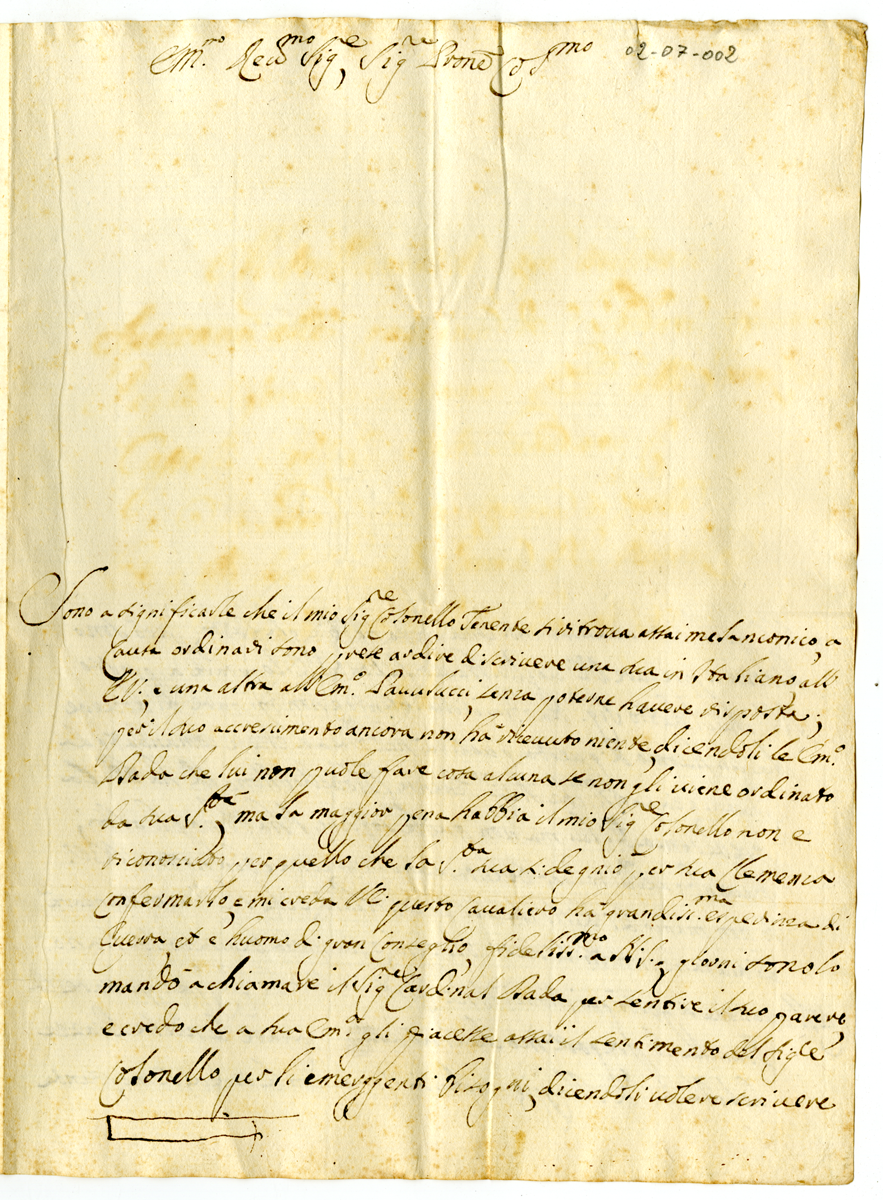 Em.mo Reu.mo Sig.re, Sig.re Prone Co S.mo
02-07-002
Sono a significarle che il mio Sig.re Colonello Tenente si ritroua assai melanconico, a
causa ordinari sono prese ardire di scriuere una sua in Italiano, all
EV: e una altra all Em.o Pauulucci, senza poterne hauere risposta;
per il suo accrescimento ancora non ha riceuuto niente, dicendoli le Em.o
Dada che lui non puole fare cosa alcuna se non gli uiene ordinato
da sua S.tà, ma la maggior pena habbia il mio Sig.re Colonello non e
riconosciuto per quello che la S.ta sua si degniò per sua Clemenza
confermarlo, e mi creda VE: questo Caualiero ha grandiss.ma esperienza di
Guerra, et è huomo di gran Conseglio, fideliss.mo a N.S., giorni sono lo
mandò a chiamare il Sig.e Cardinal Dada per sentire il suo parere,
e credo che a sua Em.a gli piacesse assai il sentimento del Sig.re
Colonello per li emergenti bisogni, dicendoli uolere scriuere